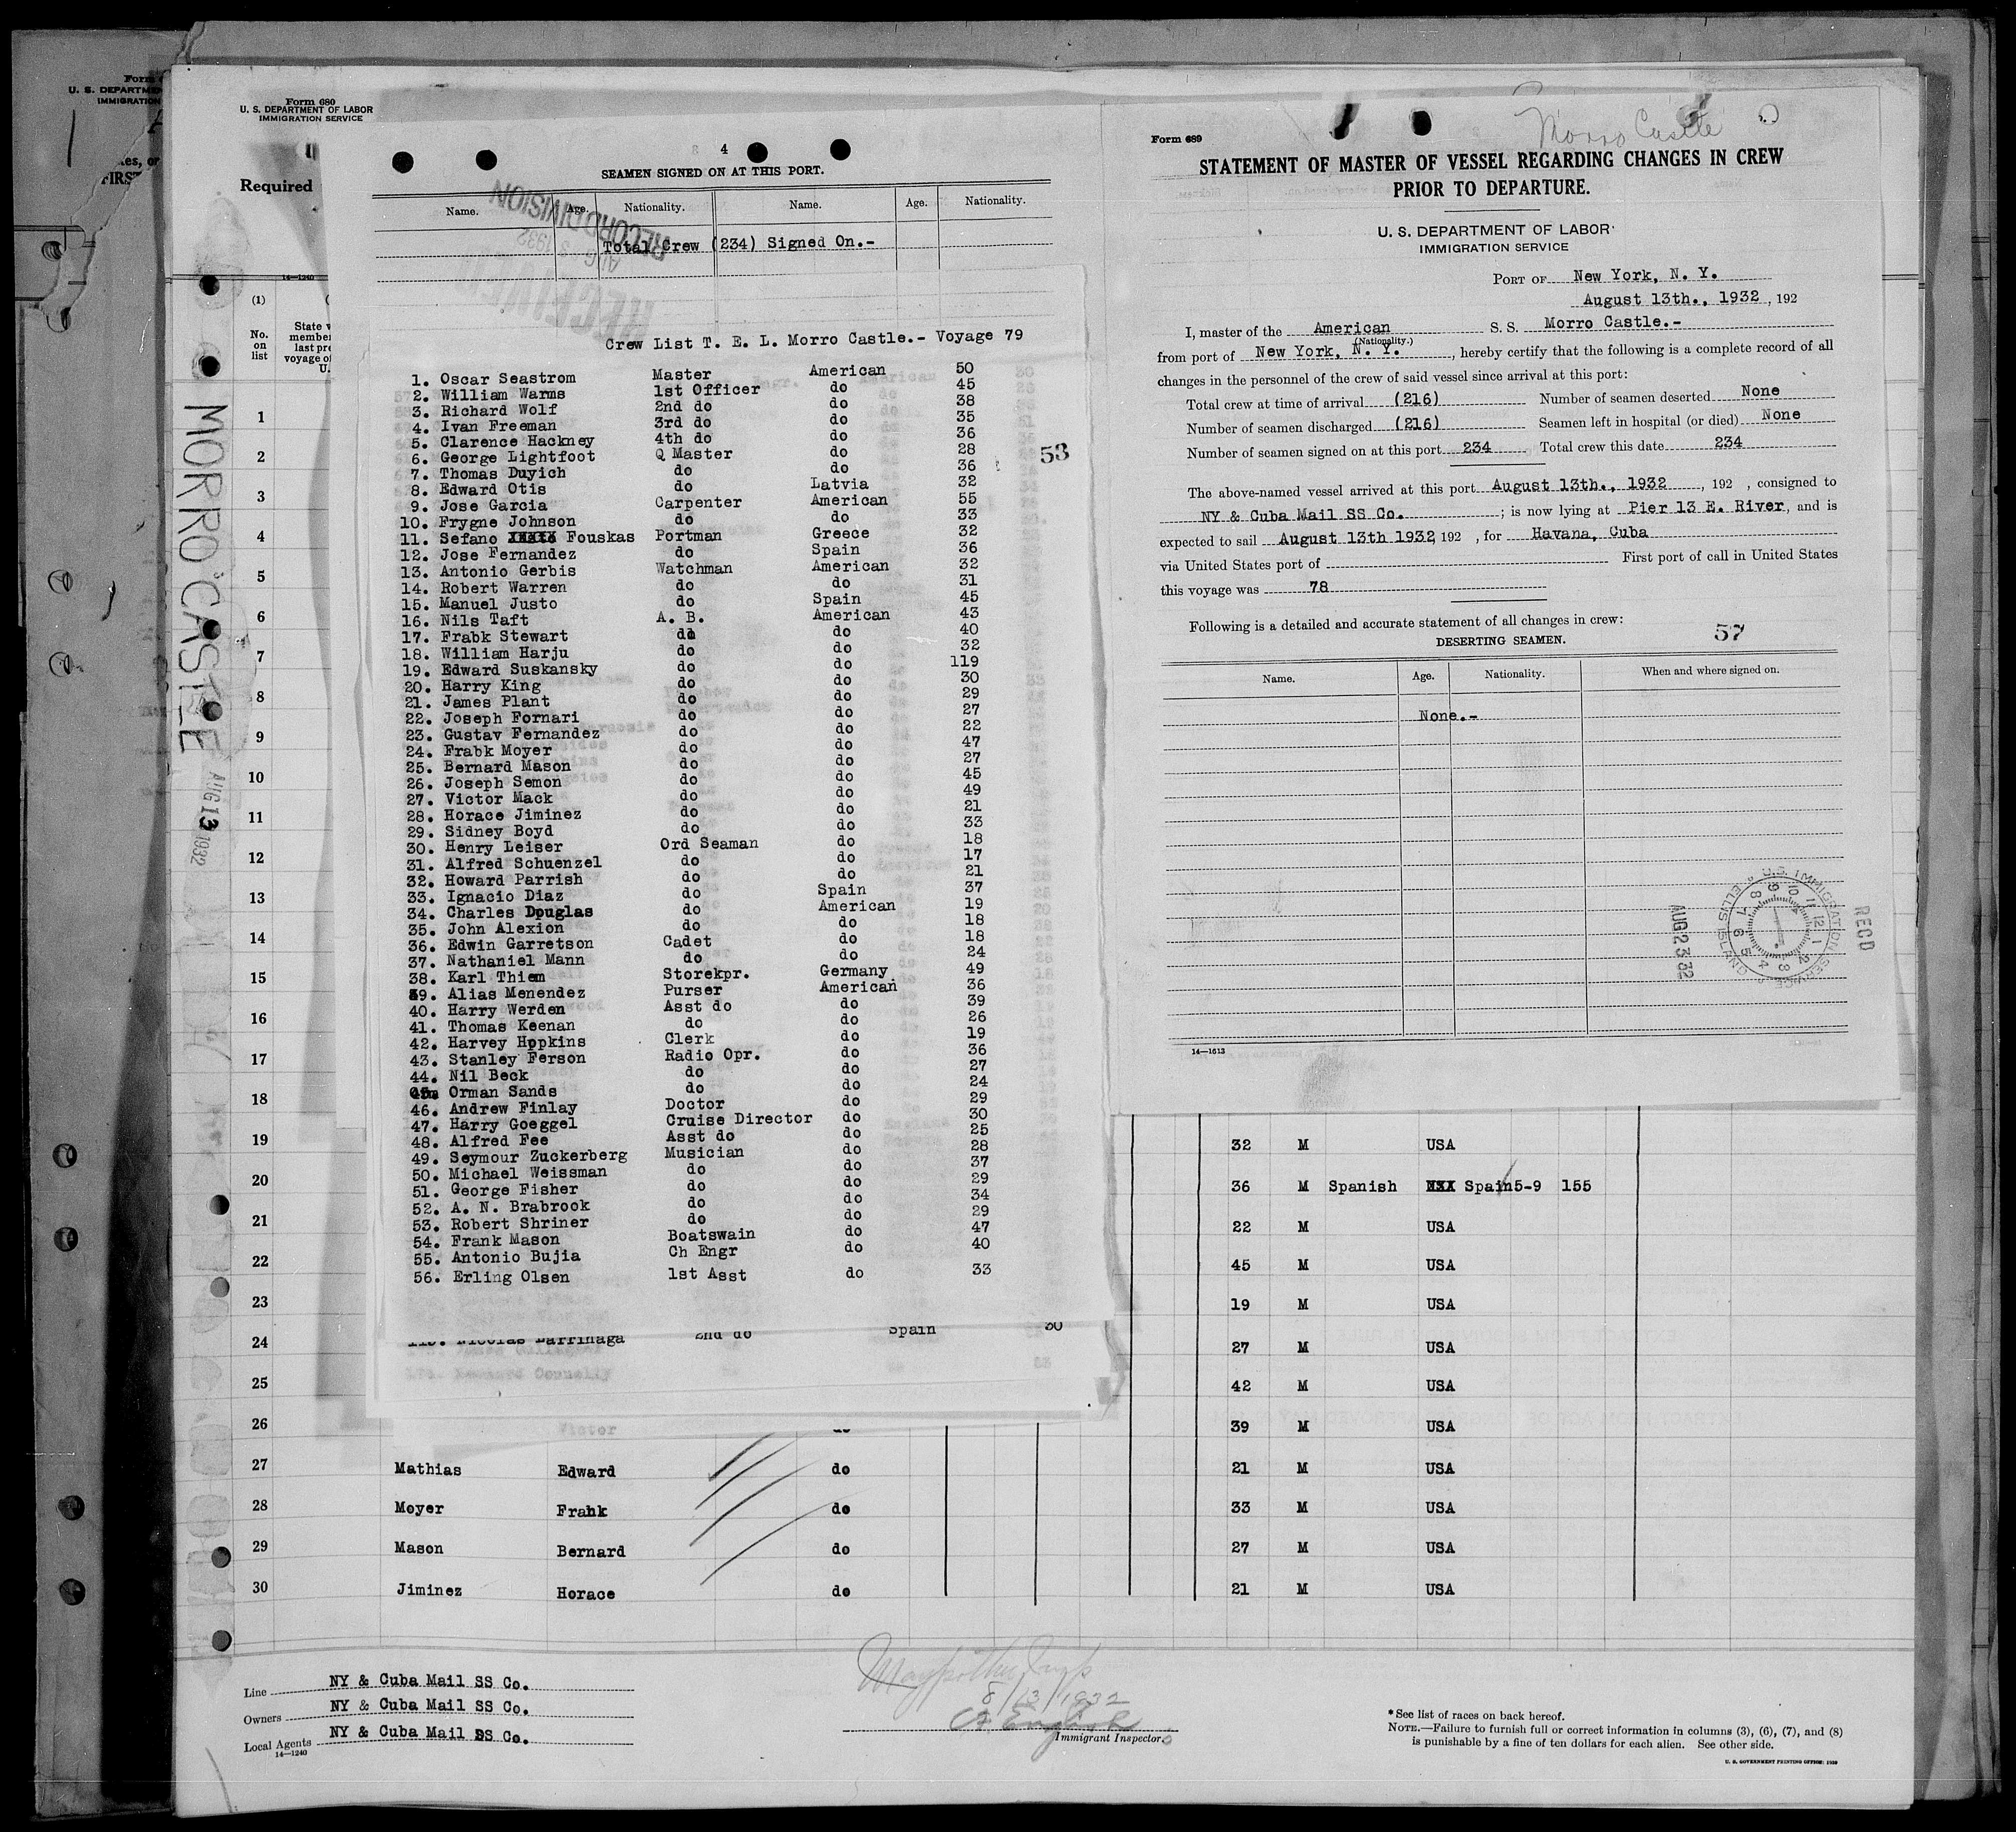 Form 680
U. S. DEPARTMENT OF LABOR
IMMIGRATION SERVICE
Required
MORRO CASTLE
AUG 13 1932
4
SEAMEN SIGNED ON AT THIS PORT.
Name. Age. Nationality. Name. Age. Nationality.
Total Crew (234) Signed On.-
RECEIVED
AUG 1932
RECORD DIVISION
Crew List T. E. L. Morro Castle.- Voyage 79
1. Oscar Seastrom Master American 50
2. William Warms 1st Officer do 45
3. Richard Wolf 2nd do do 38
4. Ivan Freeman 3rd do do 35
5. Clarence Hackney 4th do do 36
6. George Lightfoot Q Master do 28
7. Thomas Duyich do do 36
8. Edward Otis do Latvia 32
9. Jose Garcia Carpenter American 55
10. Frygne Johnson do do 33
11. Sefano Fouskas Portman Greece 32
12. Jose Fernandez do Spain 36
13. Antonio Gerbis Watchman American 32
14. Robert Warren do do 31
15. Manuel Justo do Spain 45
16. Nils Taft A. B. American 43
17. Frabk Stewart do do 40
18. William Harju do do 32
19. Edward Suskansky do do 119
20. Harry King do do 30
21. James Plant do do 29
22. Joseph Fornari do do 27
23. Gustav Fernandez do do 22
24. Frabk Moyer do do 47
25. Bernard Mason do do 27
26. Joseph Semon do do 45
27. Victor Mack do do 49
28. Horace Jiminez do do 21
29. Sidney Boyd do do 33
30. Henry Leiser Ord Seaman do 18
31. Alfred Schuenzel do do 17
32. Howard Parrish do do 21
33. Ignacio Diaz do Spain 37
34. Charles Douglas do American 19
35. John Alexion do do 18
36. Edwin Garretson Cadet do 18
37. Nathaniel Mann do do 24
38. Karl Thiem Storekpr. Germany 49
39. Alias Menendez Purser American 36
40. Harry Werden Asst do do 39
41. Thomas Keenan do do 26
42. Harvey Hopkins Clerk do 19
43. Stanley Ferson Radio Opr. do 36
44. Nil Beck do do 27
45. Orman Sands do do 24
46. Andrew Finlay Doctor do 29
47. Harry Goeggel Cruise Director do 30
48. Alfred Fee Asst do do 25
49. Seymour Zuckerberg Musician do 28
50. Michael Weissman do do 37
51. George Fisher do do 29
52. A. N. Brabrook do do 34
53. Robert Shriner do do 29
54. Frank Mason Boatswain do 47
55. Antonio Bujia Ch Engr do 40
56. Erling Olsen 1st Asst do 33
53
Nicolas Larrinaga 2nd do Spain 30
Morro Castle
Form 689
STATEMENT OF MASTER OF VESSEL REGARDING CHANGES IN CREW
PRIOR TO DEPARTURE.
U. S. DEPARTMENT OF LABOR
IMMIGRATION SERVICE
PORT OF New York, N. Y.
August 13th., 1932, 192
I, master of the American S. S. Morro Castle.-
(Nationality.)
from port of New York, N. Y., hereby certify that the following is a complete record of all
changes in the personnel of the crew of said vessel since arrival at this port:
Total crew at time of arrival (216) Number of seamen deserted None
Number of seamen discharged (216) Seamen left in hospital (or died) None
Number of seamen signed on at this port 234 Total crew this date 234
The above-named vessel arrived at this port August 13th., 1932, 192 , consigned to
NY & Cuba Mail SS Co. ; is now lying at Pier 13 E. River, and is
expected to sail August 13th 1932, 192 , for Havana, Cuba
via United States port of First port of call in United States
this voyage was 78
Following is a detailed and accurate statement of all changes in crew:
57
DESERTING SEAMEN.
Name. Age. Nationality. When and where signed on.
None.-
RECD
U.S. IMMIGRATION SERVICE ELLIS ISLAND
AUG 23 32
14—1613
14—1240
(1)
No. on list
1
2
3
4
5
6
7
8
9
10
11
12
13
14
15
16
17
18
19 32 M USA
20 36 M Spanish Spain 5-9 155
21 22 M USA
22 45 M USA
23 19 M USA
24 27 M USA
25 42 M USA
26 39 M USA
27 Mathias Edward do 21 M USA
28 Moyer Frank do 33 M USA
29 Mason Bernard do 27 M USA
30 Jiminez Horace do 21 M USA
Line NY & Cuba Mail SS Co.
Owners NY & Cuba Mail SS Co.
Local Agents NY & Cuba Mail SS Co.
14—1240
8/13/1932
English
Immigrant Inspector.
* See list of races on back hereof.
NOTE.—Failure to furnish full or correct information in columns (3), (6), (7), and (8)
is punishable by a fine of ten dollars for each alien. See other side.
U. S. GOVERNMENT PRINTING OFFICE: 1930